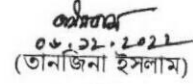 ০৮.১২.২০২২
(তানজিনা ইসলাম)